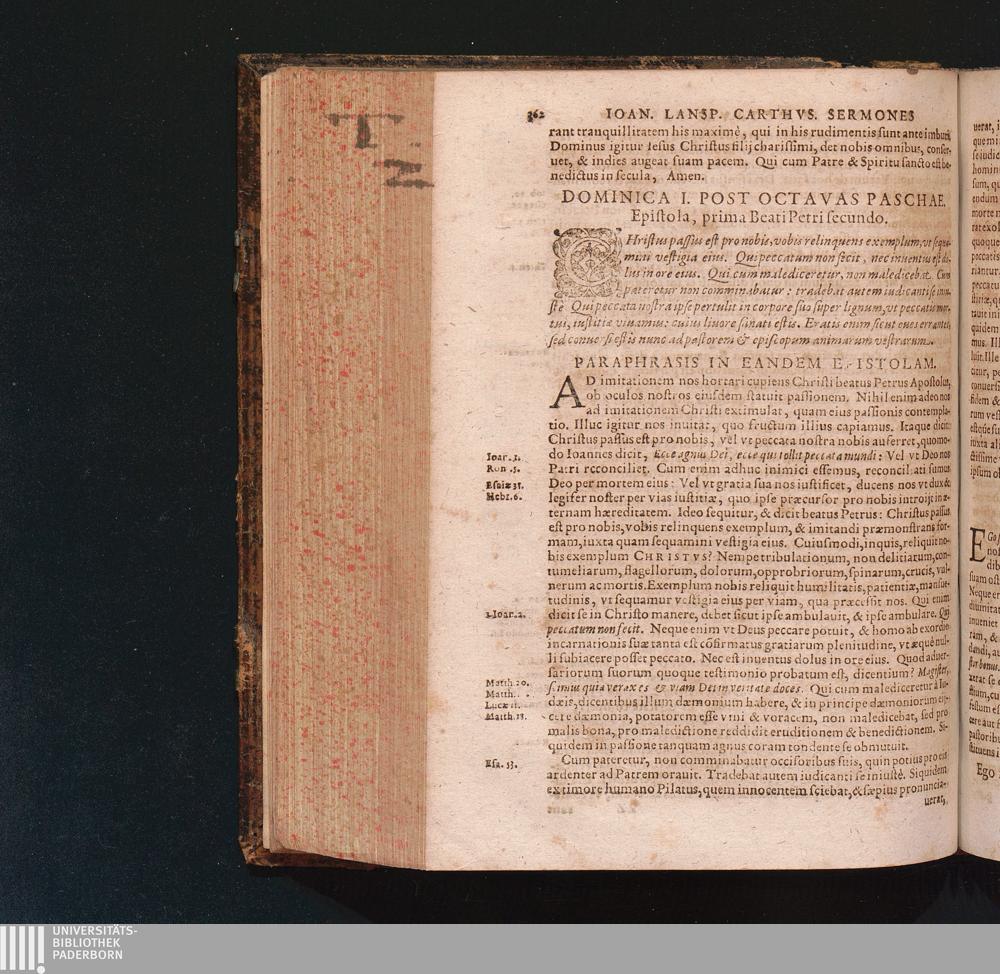 T
N
362 IOAN. LANSP. CARTHVS. SERMONES
rant tranquillitatem his maximè, qui in his rudimentis sunt ante imbuti
Dominus igitur Iesus Christus filij charissimi, det nobis omnibus, conser-
uet, & indies augeat suam pacem. Qui cum Patre & Spiritu sancto est be-
nedictus in secula, Amen.
DOMINICA I. POST OCTAVAS PASCHAE.
Epistola, prima Beati Petri secundo.
CHristus passus est pro nobis, vobis relinquens exemplum, vt sequa-
mini vestigia eius. Qui peccatum non fecit, nec inuentus est do-
lus in ore eius. Qui cum malediceretur, non maledicebat. Cum
pateretur non comminabatur: tradebat autem iudicanti se iniu-
stè Qui peccata nostra ipse pertulit in corpore suo super lignum, vt peccatis mor-
tui, iustitiæ viuamus: cuius liuore sanati estis. Eratis enim sicut oues errantes,
sed conuersi estis nunc ad pastorem & episcopum animarum vestrarum.
PARAPHRASIS IN EANDEM EPISTOLAM.
AD imitationem nos hortari cupiens Christi beatus Petrus Apostolus,
ob oculos nostros eiusdem statuit passionem. Nihil enim adeo nos
ad imitationem Christi extimulat, quam eius passionis contempla-
tio. Illuc igitur nos inuitat, quo fructum illius capiamus. Itaque dicit:
Christus passus est pro nobis, vel vt peccata nostra nobis auferret, quomo-
Ioan. 1. do Ioannes dicit, Ecce agnus Dei, ecce qui tollit peccata mundi: Vel vt Deo nos
Rom .5. Patri reconciliet. Cum enim adhuc inimici essemus, reconciliati sumus
Esaiæ 35. Deo per mortem eius: Vel vt gratia sua nos iustificet, ducens nos vt dux &
Hebr. 6. legifer noster per vias iustitiæ, quo ipse præcursor pro nobis introijt in æ-
ternam hæreditatem. Ideo sequitur, & dicit beatus Petrus: Christus passus
est pro nobis, vobis relinquens exemplum, & imitandi præmonstrans for-
mam, iuxta quam sequamini vestigia eius. Cuiusmodi, inquis, reliquit no-
bis exemplum CHRISTVS? Nempe tribulationum, non delitiarum, con-
tumeliarum, flagellorum, dolorum, opprobriorum, spinarum, crucis, vul-
nerum ac mortis. Exemplum nobis reliquit humilitatis, patientiæ, mansue-
tudinis, vt sequamur vestigia eius per viam, qua præcessit nos. Qui enim
1. Ioan. 2. dicit se in Christo manere, debet sicut ipse ambulauit, & ipse ambulare. Qui
peccatum non fecit. Neque enim vt Deus peccare potuit, & homo ab exordio
incarnationis suæ tanta est cōfirmatus gratiarum plenitudine, vt æquè nul-
li subiacere posset peccato. Nec est inuentus dolus in ore eius. Quod aduer-
sariorum suorum quoque testimonio probatum est, dicentium? Magister,
Matth. 20. scimus quia verax es & viam Dei in veritate doces. Qui cum malediceretur à Iu-
Matth. dæis, dicentibus illum dæmonium habere, & in principe dæmoniorum eij-
Lucæ 11. cere dæmonia, potatorem esse vini & voracem, non maledicebat, sed pro
Matth. 13. malis bona, pro maledictione reddidit eruditionem & benedictionem. Si-
quidem in passione tanquam agnus coram tondente se obmutuit.
Esa. 53. Cum pateretur, non comminabatur occisoribus suis, quin potius pro eis
ardenter ad Patrem orauit. Tradebat autem iudicanti se iniustè. Siquidem
ex timore humano Pilatus, quem innocentem sciebat, & sæpius pronuncia-
uerat,
UNIVERSITÄTS-
BIBLIOTHEK
PADERBORN